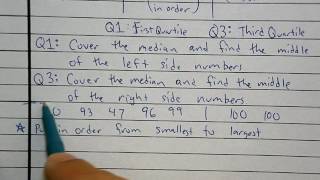 (in order)
Q1: First Quartile Q3: Third Quartile
Q1: Cover the median and find the middle
of the left side numbers
Q3: Cover the median and find the middle
of the right side numbers
0 93 47 96 99 1 100 100
in order from smallest to largest